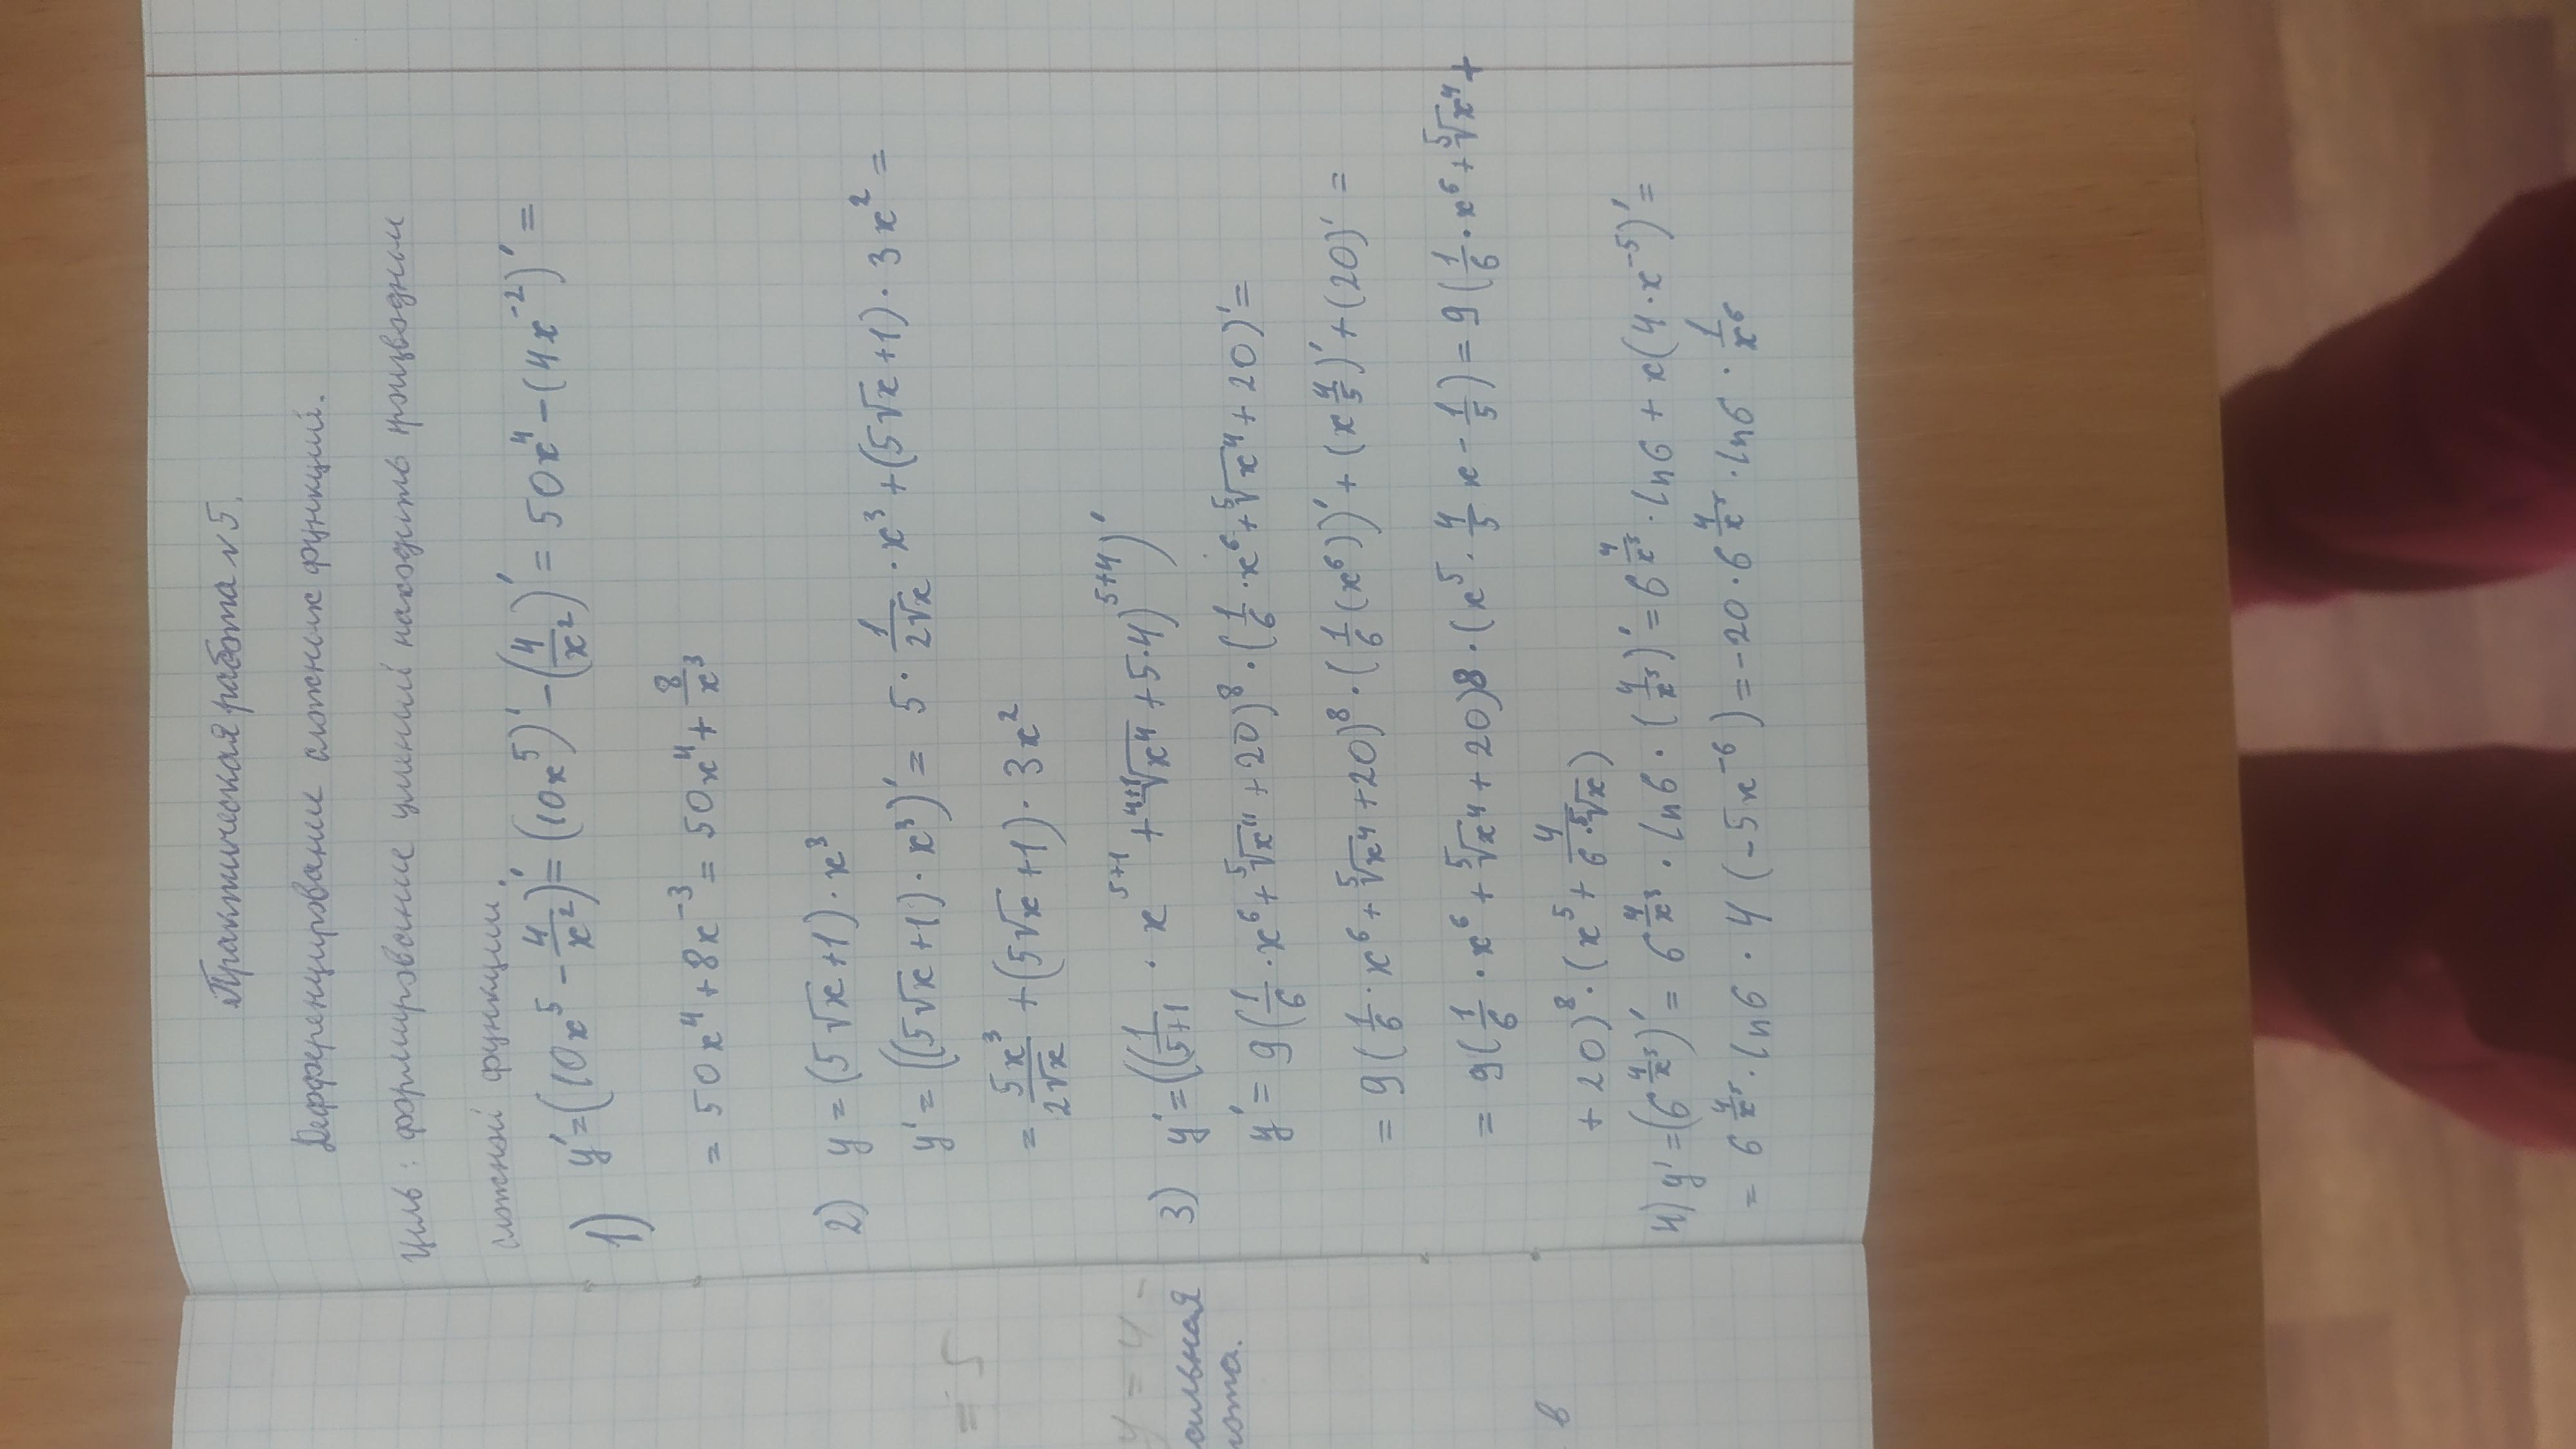 Практическая работа №5.
Дифференцирование сложных функций.
Цель: формирование умений находить производным
сложной функции.
1) y'=(10x⁵ - 4/x²)'=(10x⁵)' - (4/x²)' = 50x⁴ - (4x⁻²)' =
= 50x⁴ + 8x⁻³ = 50x⁴ + 8/x³
2) y = (5√x + 1) · x³
y' = ((5√x + 1) · x³)' = 5 · 1/(2√x) · x³ + (5√x + 1) · 3x² =
= 5x³/(2√x) + (5√x + 1) · 3x²
3) y' = ((1/(5+1) · x⁵⁺¹ + ⁴⁺¹√x⁴ + 5·4)⁵⁺⁴)'
y' = 9(1/6 · x⁶ + ⁵√x⁴ + 20)⁸ · (1/6 · x⁶ + ⁵√x⁴ + 20)' =
= 9(1/6 · x⁶ + ⁵√x⁴ + 20)⁸ · (1/6(x⁶))' + (x 4/5)' + (20)' =
= 9(1/6 · x⁶ + ⁵√x⁴ + 20)8 · (x⁵ · 4/5 x - 1/5) = 9(1/6 · x⁶ + ⁵√x⁴ +
+ 20)⁸ · (x⁵ + 4/(6·⁵√x))
4) y' = (6^(4/x⁵))' = 6^(4/x⁵) · ln6 · (4/x⁵)' = 6^(4/x⁵) · ln6 + x(4·x⁻⁵)' =
= 6^(4/x⁵) · ln6 · 4(-5x⁻⁶) = -20 · 6^(4/x⁵) · ln6 · 1/x⁶
= 5
y = 4 -
сильная
юта.
в